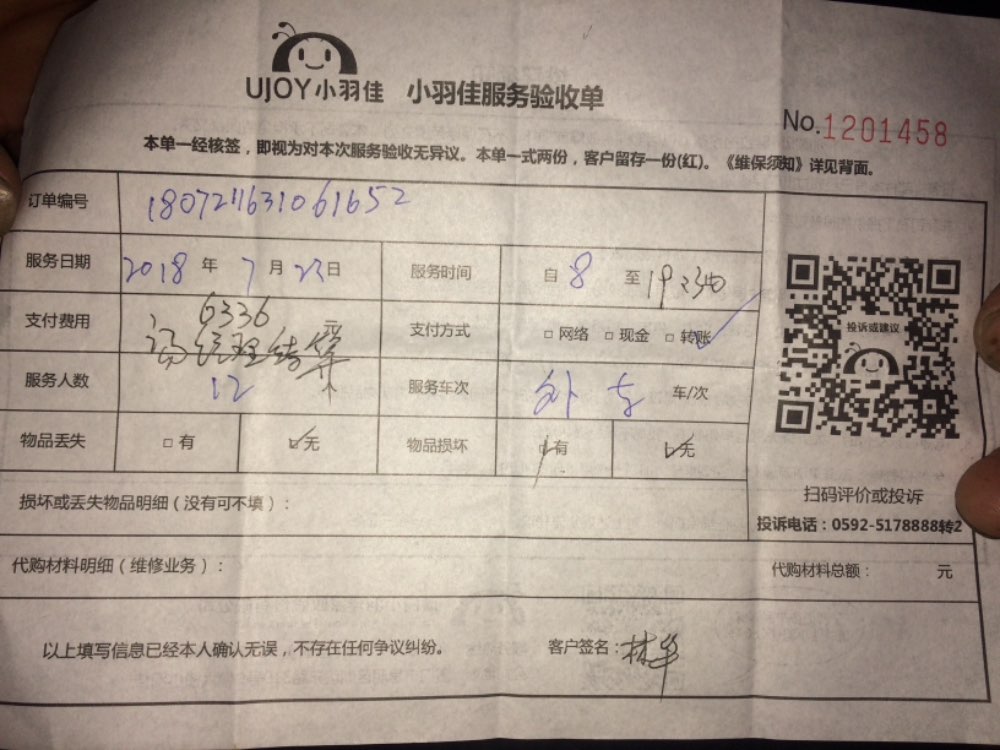 UJOY小羽佳 小羽佳服务验收单
No.1201458
本单一经核签，即视为对本次服务验收无异议。本单一式两份，客户留存一份(红)。《维保须知》详见背面。
订单编号 1807211631061652
服务日期 2018 年 7 月 23 日 服务时间 自 8 至 19:40
投诉或建议
支付费用 6336 冯经理结算 支付方式 □ 网络 □ 现金 □ 转账
服务人数 12 服务车次 外车 车/次
物品丢失 □ 有 □ 无 物品损坏 □ 有 □ 无
扫码评价或投诉
损坏或丢失物品明细（没有可不填）：
投诉电话：0592-5178888转2
代购材料明细（维修业务）： 代购材料总额： 元
以上填写信息已经本人确认无误，不存在任何争议纠纷。 客户签名：林华